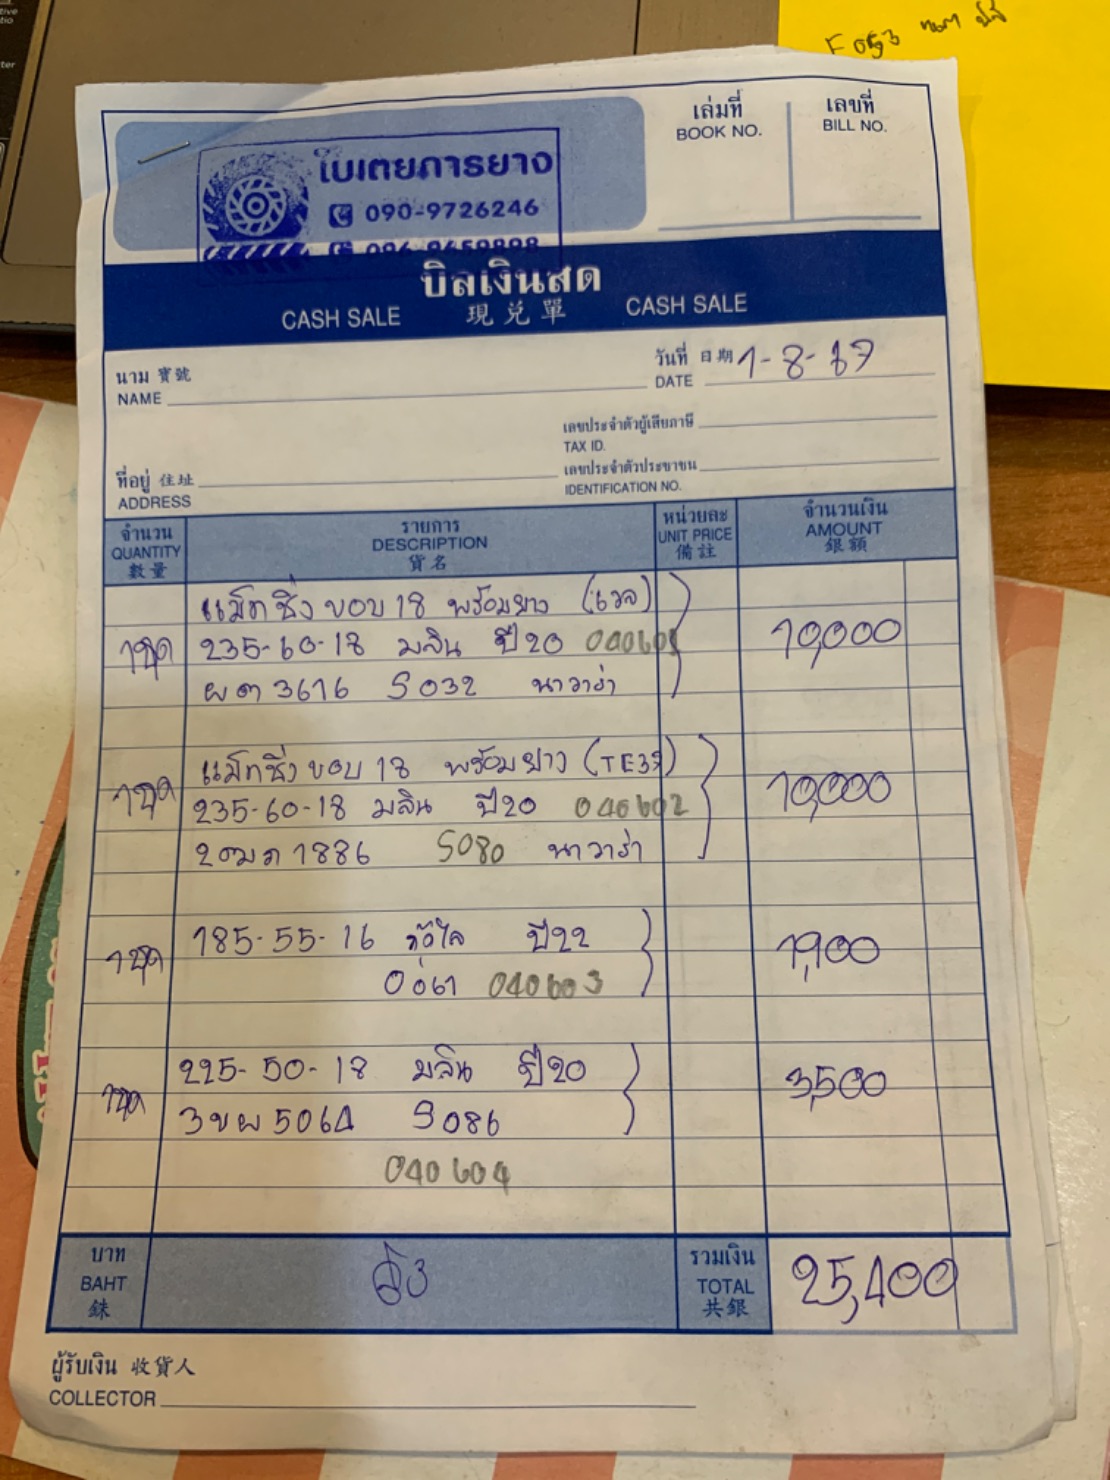 F 053
ใบเตยการยาง
090-9726246
096-9659898
เล่มที่
BOOK NO.
เลขที่
BILL NO.
บิลเงินสด
CASH SALE 現兌單 CASH SALE
นาม 寶號
NAME
วันที่ 日期 1-8-67
DATE
เลขประจำตัวผู้เสียภาษี
TAX ID.
ที่อยู่ 住址
ADDRESS
เลขประจำตัวประชาชน
IDENTIFICATION NO.
จำนวน
QUANTITY
數量
รายการ
DESCRIPTION
貨名
หน่วยละ
UNIT PRICE
備註
จำนวนเงิน
AMOUNT
銀額
แม็กซิ่ง ขอบ 18 พร้อมยาง (เวล)
1ชุด 235-60-18 มลิน ปี20 040601 10,000
ผต 3616 S032 นาวาร่า
แม็กซิ่ง ขอบ 18 พร้อมยาง
1ชุด 235-60-18 มลิน ปี20 040602 10,000
2ฒภ 1886 S080 นาวาร่า
1ชุด 185-55-16 ปี22 1,900
040603
1ชุด 225-50-18 มลิน ปี20 3,500
3ขผ 5064 S086
040604
บาท
BAHT
銖
รวมเงิน
TOTAL
共銀
25,400
ผู้รับเงิน 收貨人
COLLECTOR